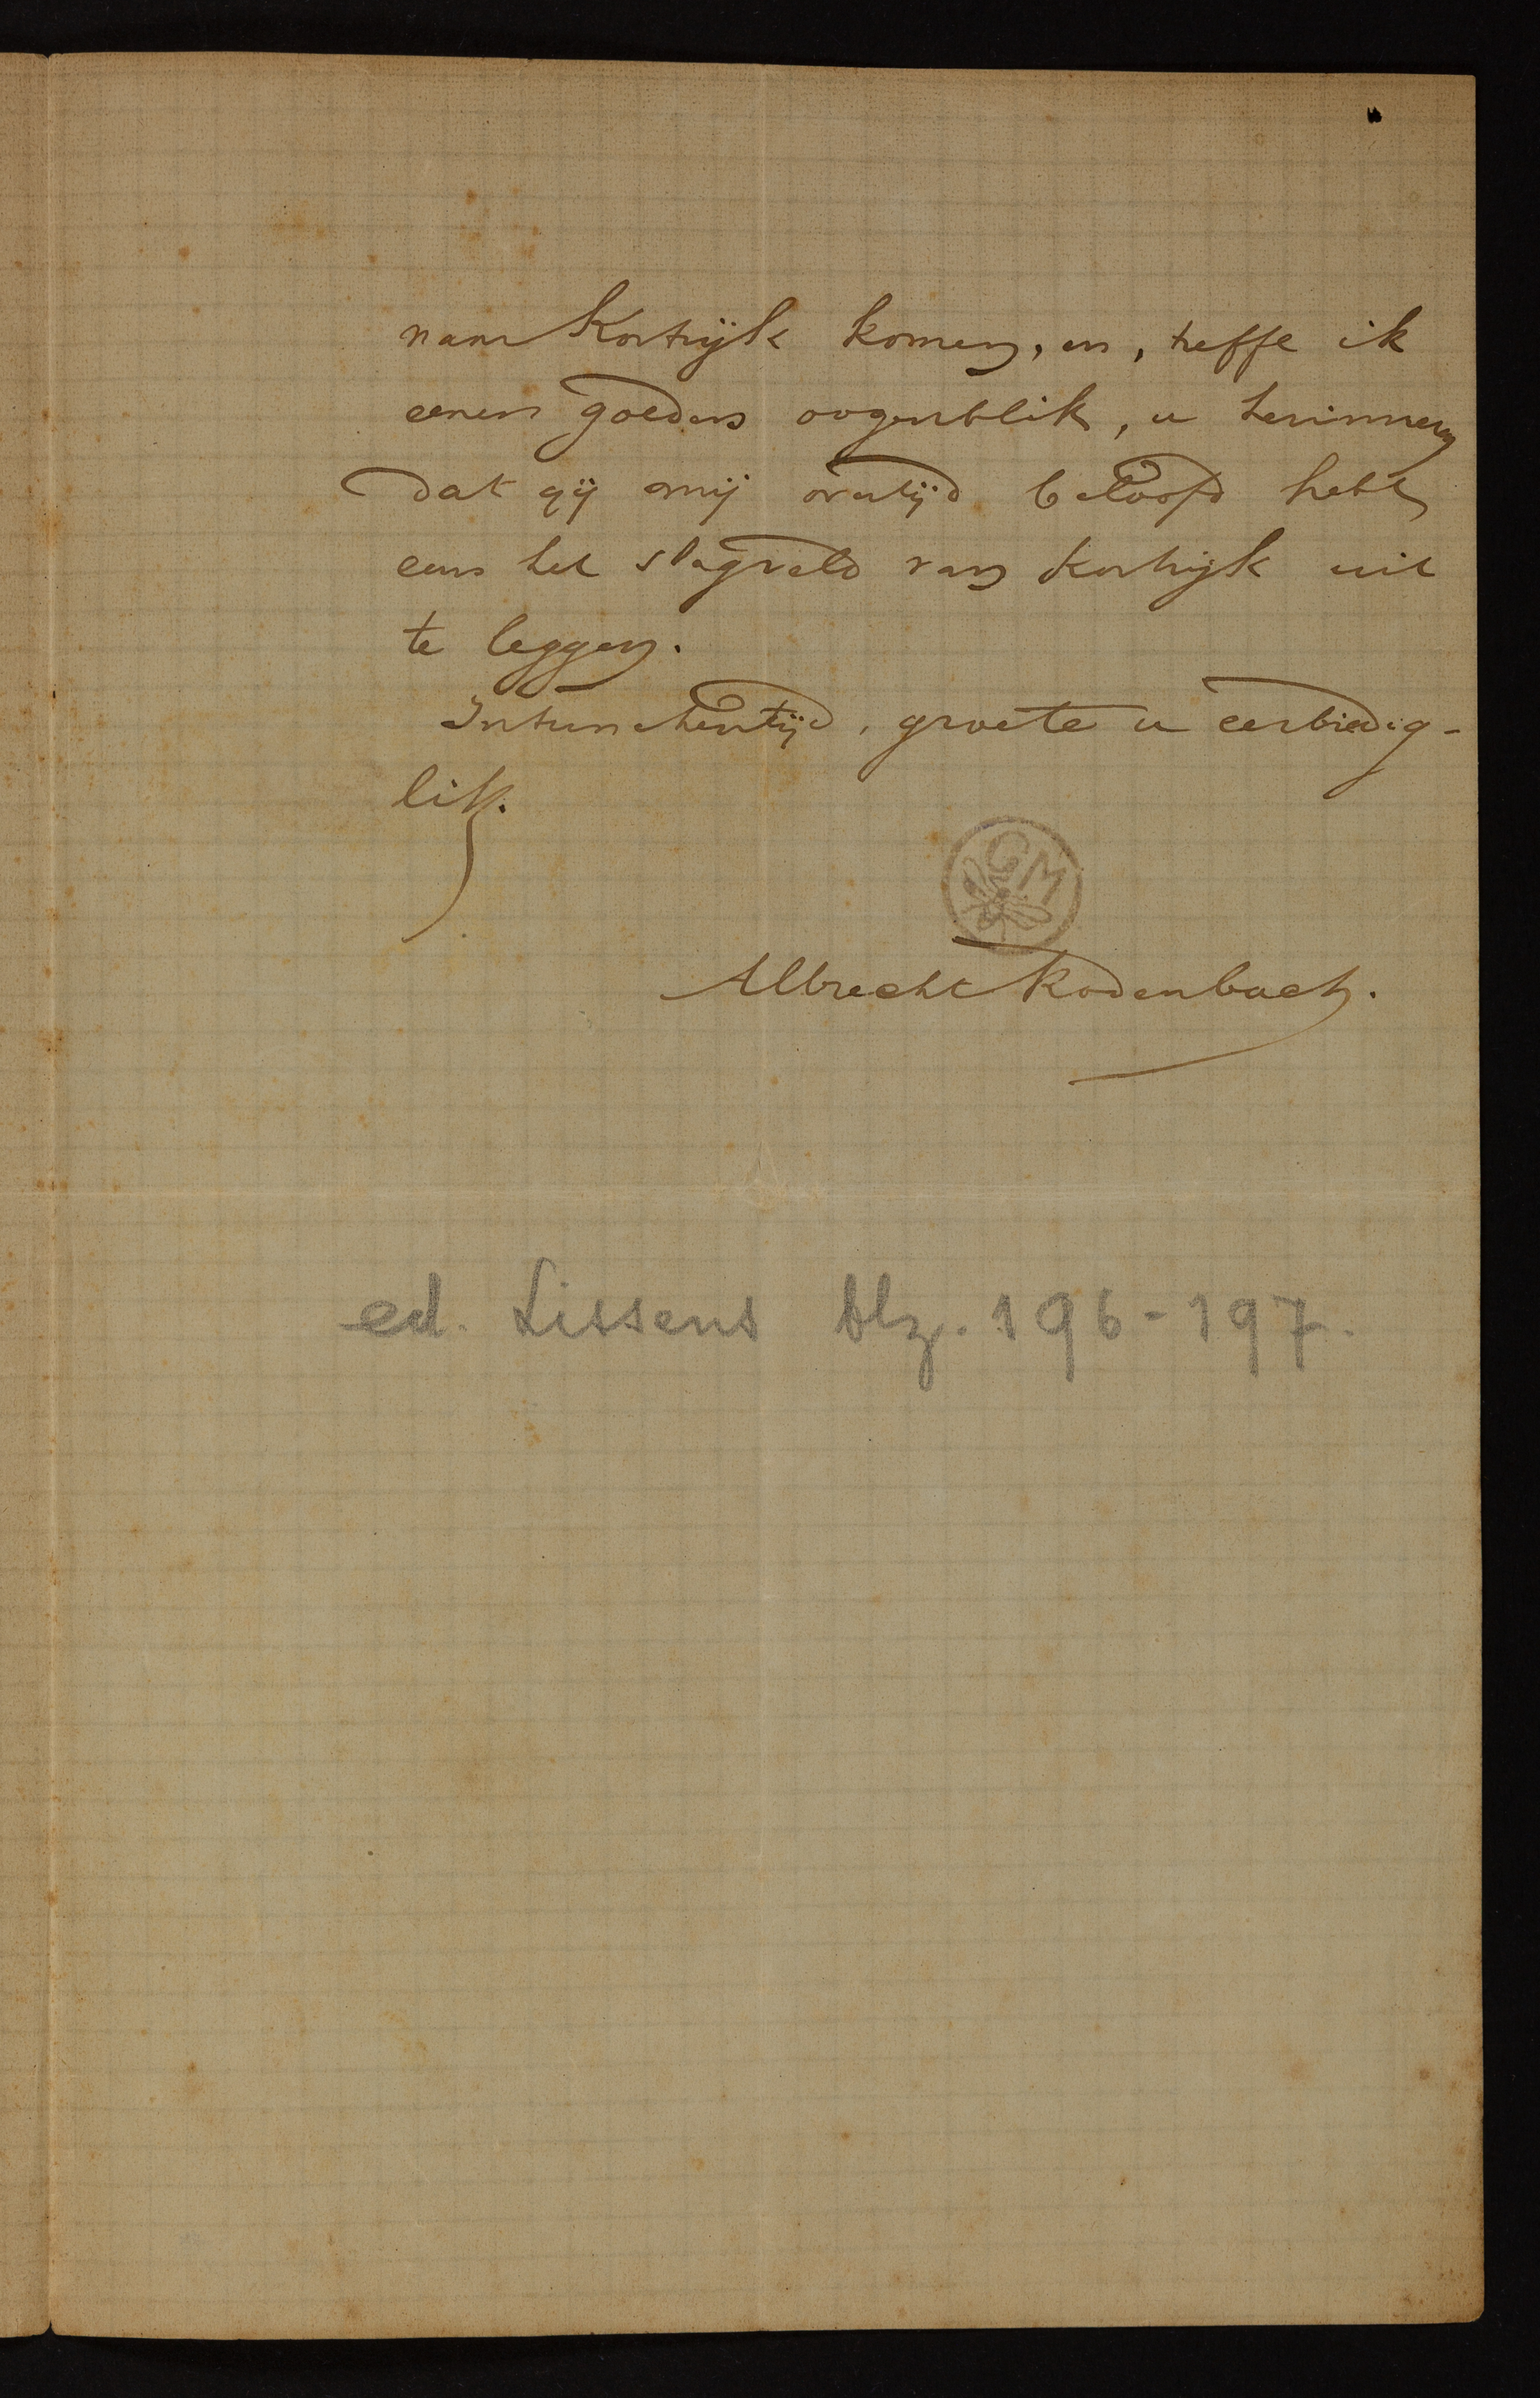 naar Kortrijk komen, en, treffe ik
eenen goeden oogenblik, u herinneren
dat gij mij overtijd beloofd hebt
eens het slagveld van Kortrijk uit
te leggen.
Intusschentijd, groete u eerbiedig-
lik.
GM
Albrecht Rodenbach.
ed. Lissens blz. 196-197.